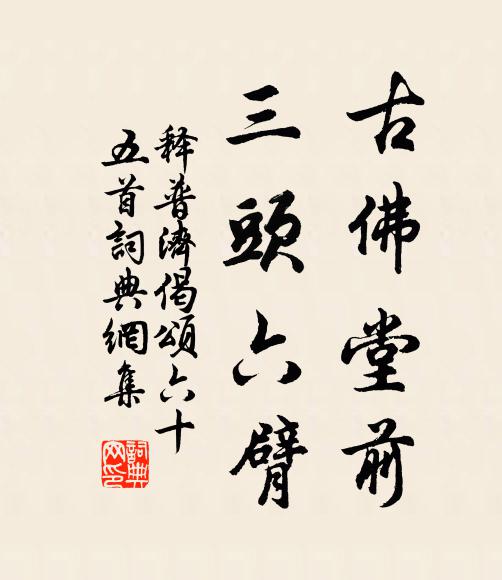 古佛堂前
三頭六臂
释普濟偈頌六十
五首詞典網集
詞典
网印